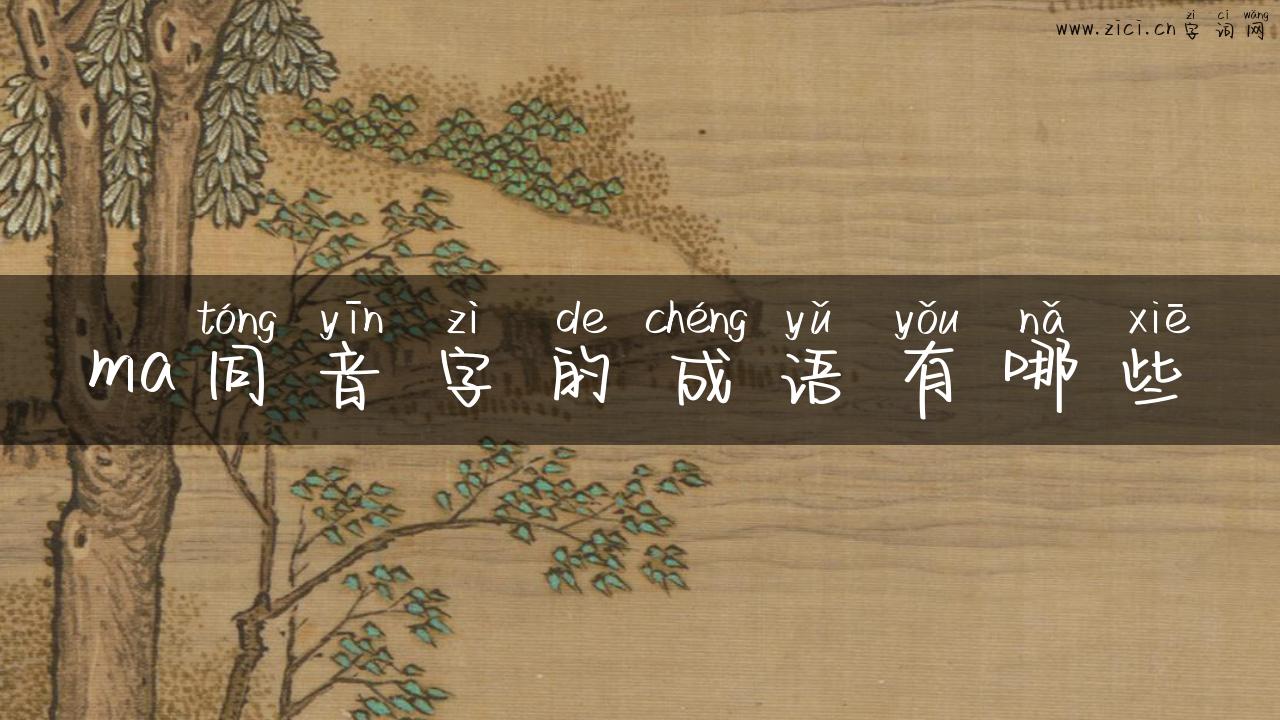 zì cí wǎng
www.zici.cn 字词网
tóng yīn zì de chéng yǔ yǒu nǎ xiē
ma同音字的成语有哪些